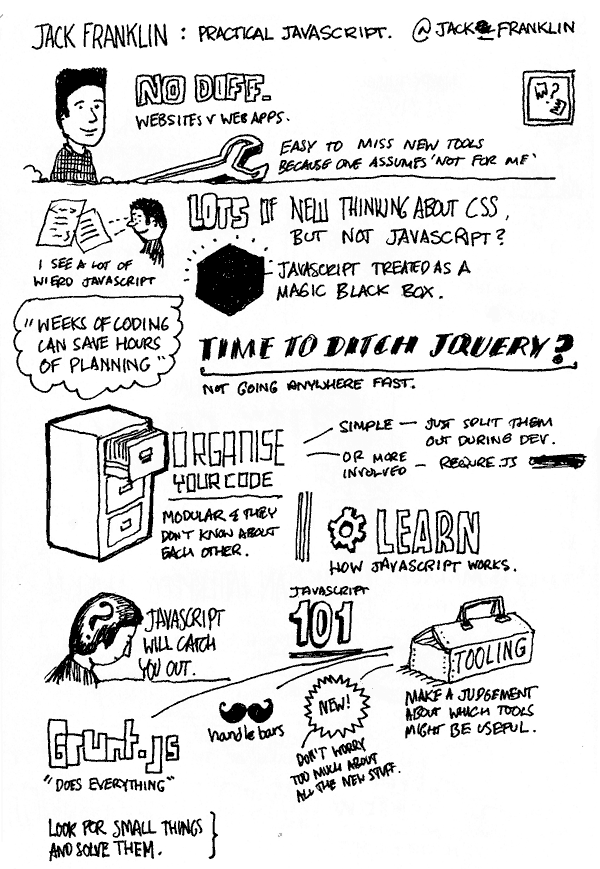 JACK FRANKLIN : PRACTICAL JAVASCRIPT. @JACK_FRANKLIN
NO DIFF.
WEBSITES V WEB APPS.
W? W
EASY TO MISS NEW TOOLS
BECAUSE ONE ASSUMES 'NOT FOR ME'
LOTS OF NEW THINKING ABOUT CSS,
BUT NOT JAVASCRIPT?
I SEE A LOT OF
WIERD JAVASCRIPT
JAVASCRIPT TREATED AS A
MAGIC BLACK BOX.
"WEEKS OF CODING
CAN SAVE HOURS
OF PLANNING"
TIME TO DITCH JQUERY?
NOT GOING ANYWHERE FAST.
ORGANISE
YOUR CODE
SIMPLE — JUST SPLIT THEM
OUT DURING DEV.
OR MORE
INVOLVED — REQUIRE.JS
MODULAR & THEY
DON'T KNOW ABOUT
EACH OTHER.
LEARN
HOW JAVASCRIPT WORKS.
JAVASCRIPT
101
?
JAVASCRIPT
WILL CATCH
YOU OUT.
TOOLING
MAKE A JUDGEMENT
ABOUT WHICH TOOLS
MIGHT BE USEFUL.
Grunt.js
"DOES EVERYTHING"
handlebars
NEW!
DON'T WORRY
TOO MUCH ABOUT
ALL THE NEW STUFF.
LOOK FOR SMALL THINGS
AND SOLVE THEM.